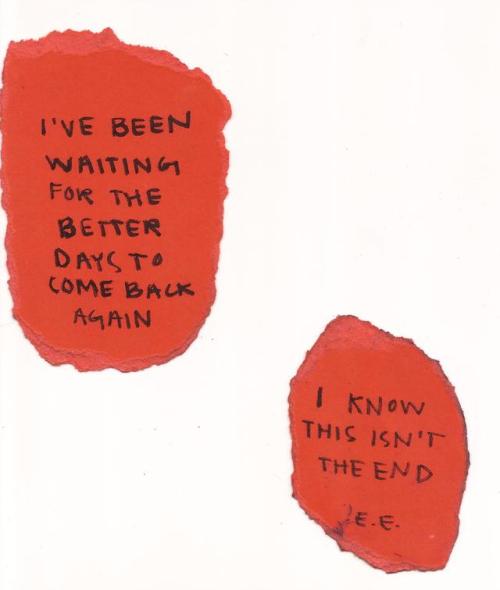 I'VE BEEN
WAITING
FOR THE
BETTER
DAYS TO
COME BACK
AGAIN
I KNOW
THIS ISN'T
THE END
E.E.